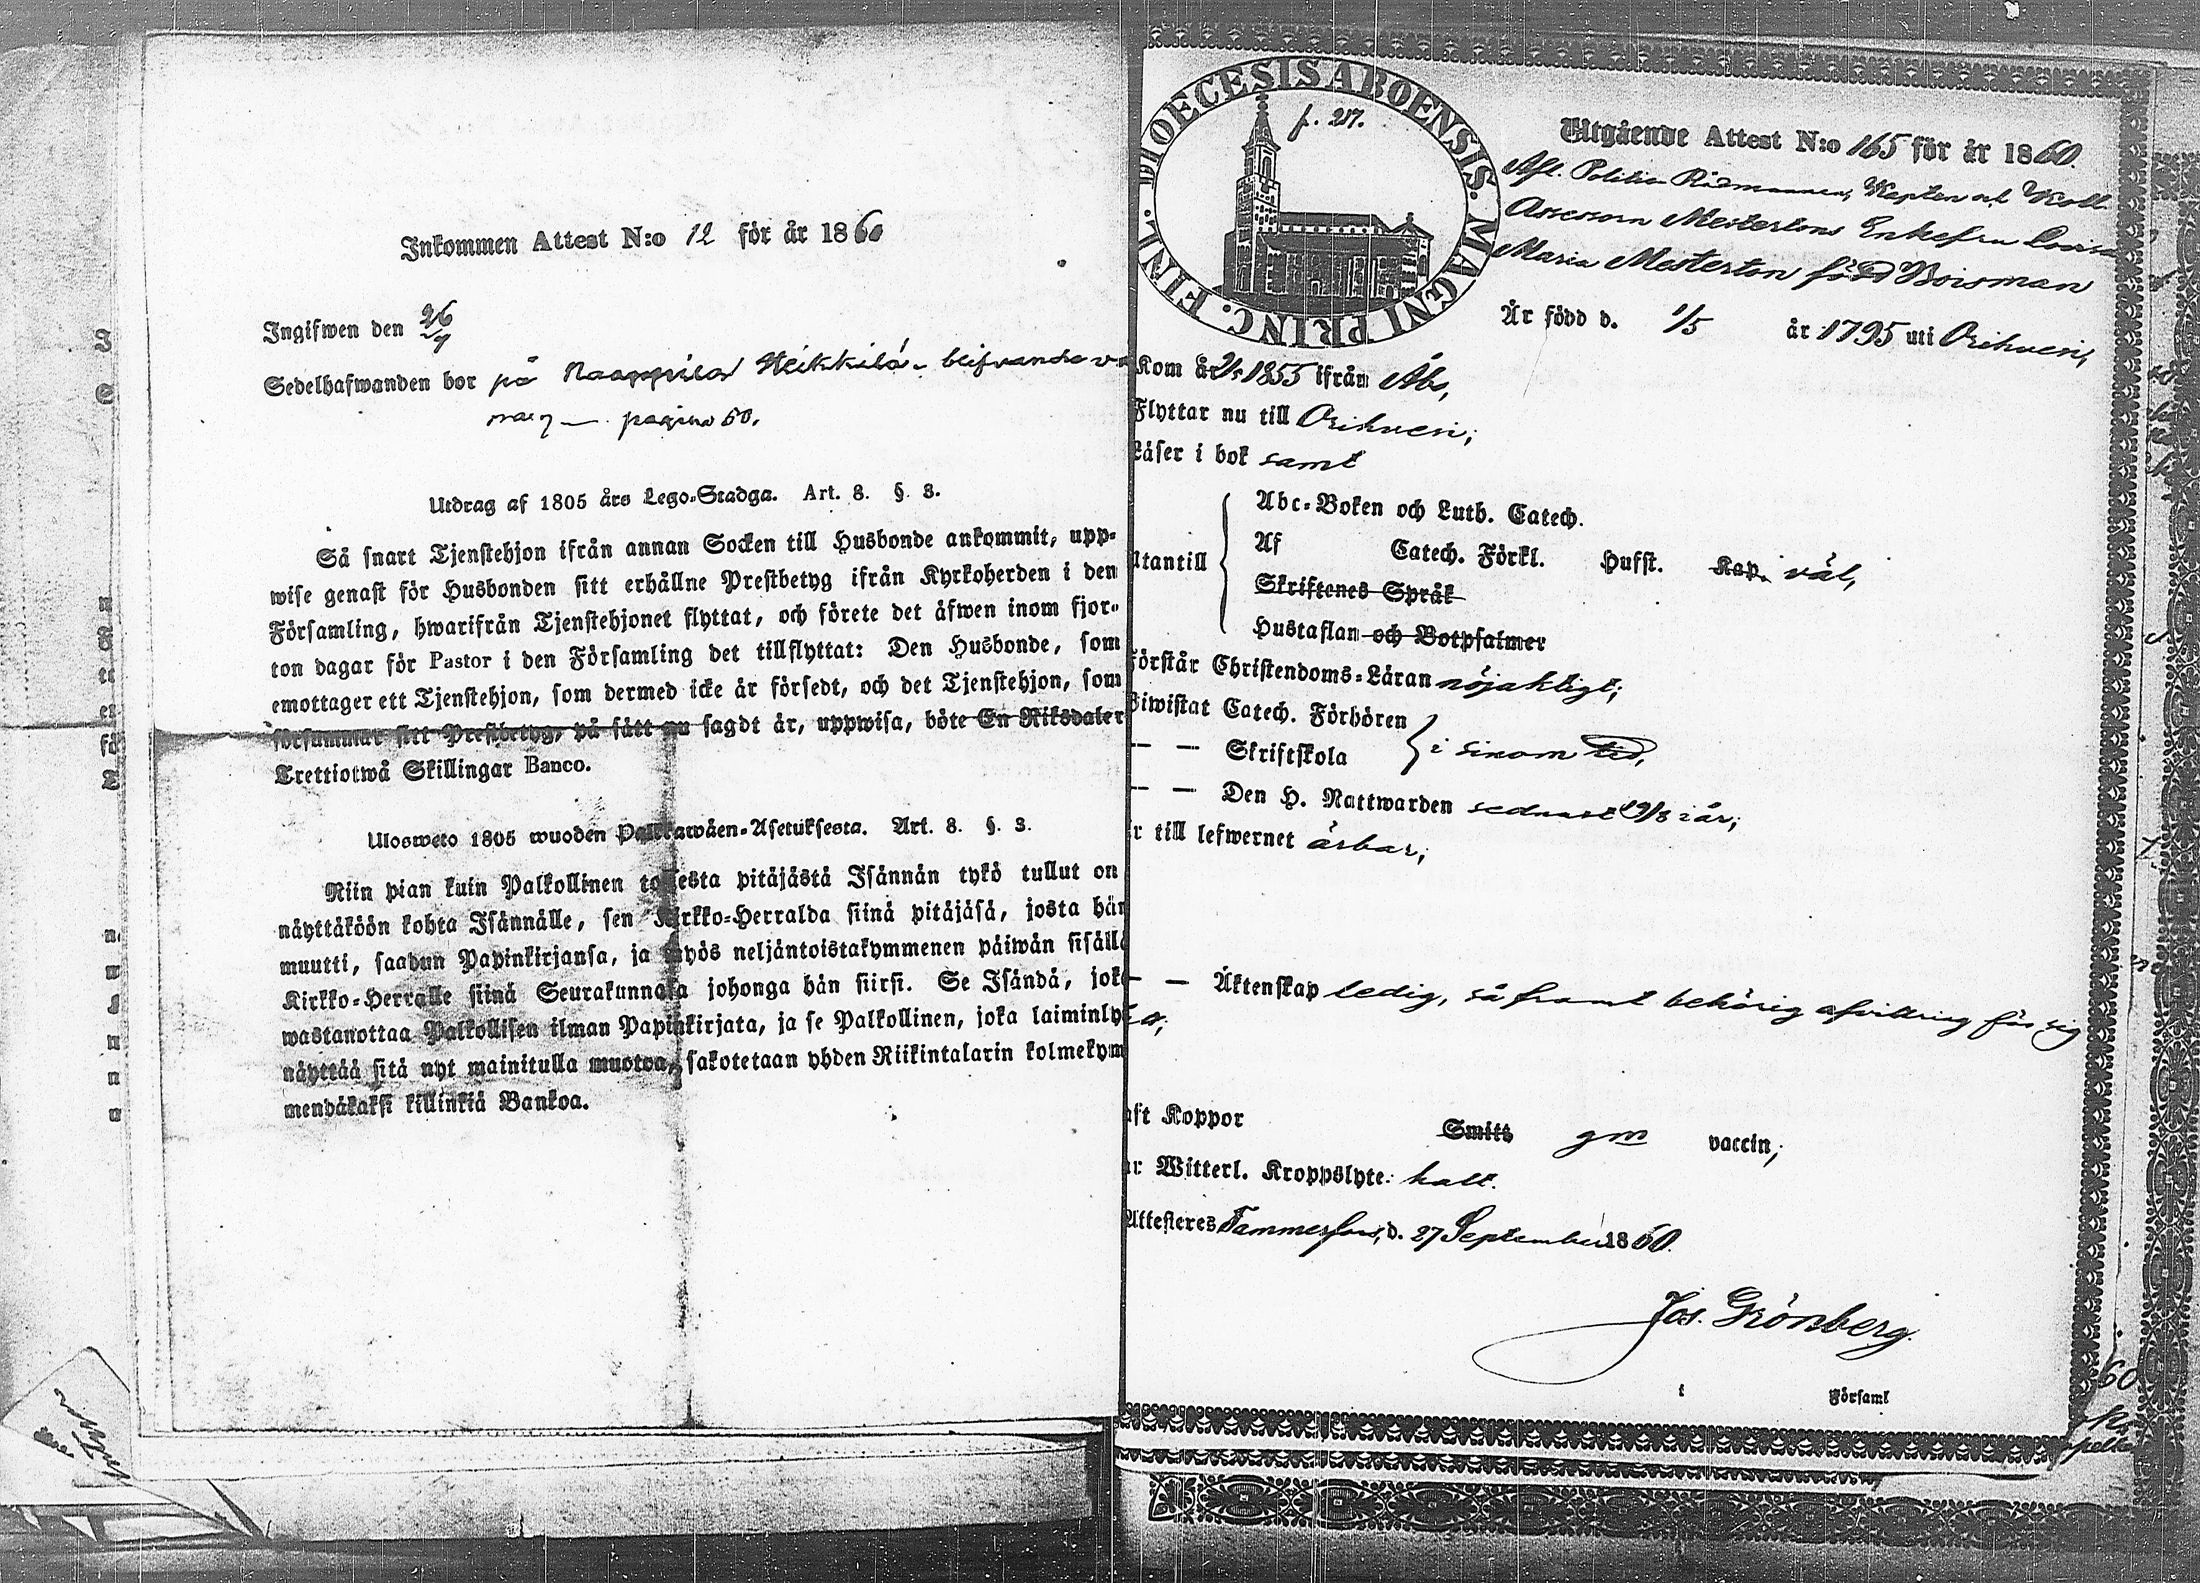 Inkommen Attest N:o 12 för år 1860
Ingifwen den 26/9
Sedelhafwanden bor på Naappila Heikkilä - blifvande
pagina 60.
Utdrag af 1805 års Lego-Stadga. Art. 8. §. 3.
Så snart Tjenstehjon ifrån annan Socken till Husbonde ankommit, upp-
wise genast för Husbonden sitt erhållne Prestbetyg ifrån Kyrkoherden i den
Församling, hwarifrån Tjenstehjonet flyttat, och förete det äfwen inom fjor-
ton dagar för Pastor i den Församling det tillflyttat: Den Husbonde, som
emottager ett Tjenstehjon, som dermed icke är försedt, och det Tjenstehjon, som
försummar sitt Prestbetyg, på sätt nu sagdt är, uppwisa, böte En Riksdaler
Trettiotwå Skillingar Banco.
Ulosweto 1805 wuoden Palkkawäen-Asetuksesta. Art. 8. §. 3.
Niin pian kuin Palkollinen toisesta pitäjästä Isännän tykö tullut on
näyttäköön kohta Isännälle, sen Kirkko-Herralda siinä pitäjäsä, josta hän
muutti, saadun Papinkirjansa, ja myös neljäntoistakymmenen päiwän sisällä
Kirkko-Herralle siinä Seurakunnasa johonga hän siirsi. Se Isändä, joka
wastanottaa Palkollisen ilman Papinkirjata, ja se Palkollinen, joka laiminlyö
näyttää sitä nyt mainitulla muotoa, sakotetaan yhden Riikintalarin kolmekym
mendäkaksi killinkiä Bankoa.
DIOECESIS ABOENSIS. MAGNI PRINC. FINL.
p. 217.
Utgående Attest N:o 165 för år 1860.
Afl. Politie Rådmannen, Kapten och Koll.
Assessorn Mestertons Enkefru Lovisa
Maria Mesterton född Boisman
Är född d. 1/5 år 1795 uti Orihvesi,
Kom år 1855 ifrån Åbo,
Flyttar nu till Orihvesi;
Läser i bok samt
Utantill
Abc-Boken och Luth. Catech.
Af Catech. Förkl. Hufst. Kap. väl,
Skriftenes Språk
Hustaflan och Botpsalmer
Förstår Christendoms-Läran nöjaktigt;
Biwistat Catech. Förhören
— — Skriftskola i sinom tid,
— — Den H. Nattwarden sednast 19/8 i år;
r till lefwernet ärbar;
— — Äktenskap ledig, så framt behörig afvittring för sig
gått;
aft Koppor Smitt gm vaccin;
ar Witterl. Kroppslyte: halt.
Attesteres Tammerfors, d. 27 September 1860.
Jos. Grönberg.
i Församl